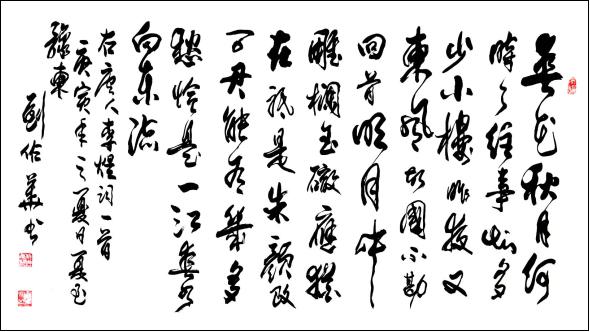 春花秋月何
時了往事知多
少小樓昨夜又
東風故國不堪
回首明月中
雕欄玉砌應猶
在祇是朱顏改
問君能有幾多
愁恰是一江春水
向東流
右唐人李煜詞一首
庚寅年之夏日夏至
東
劉佑華書